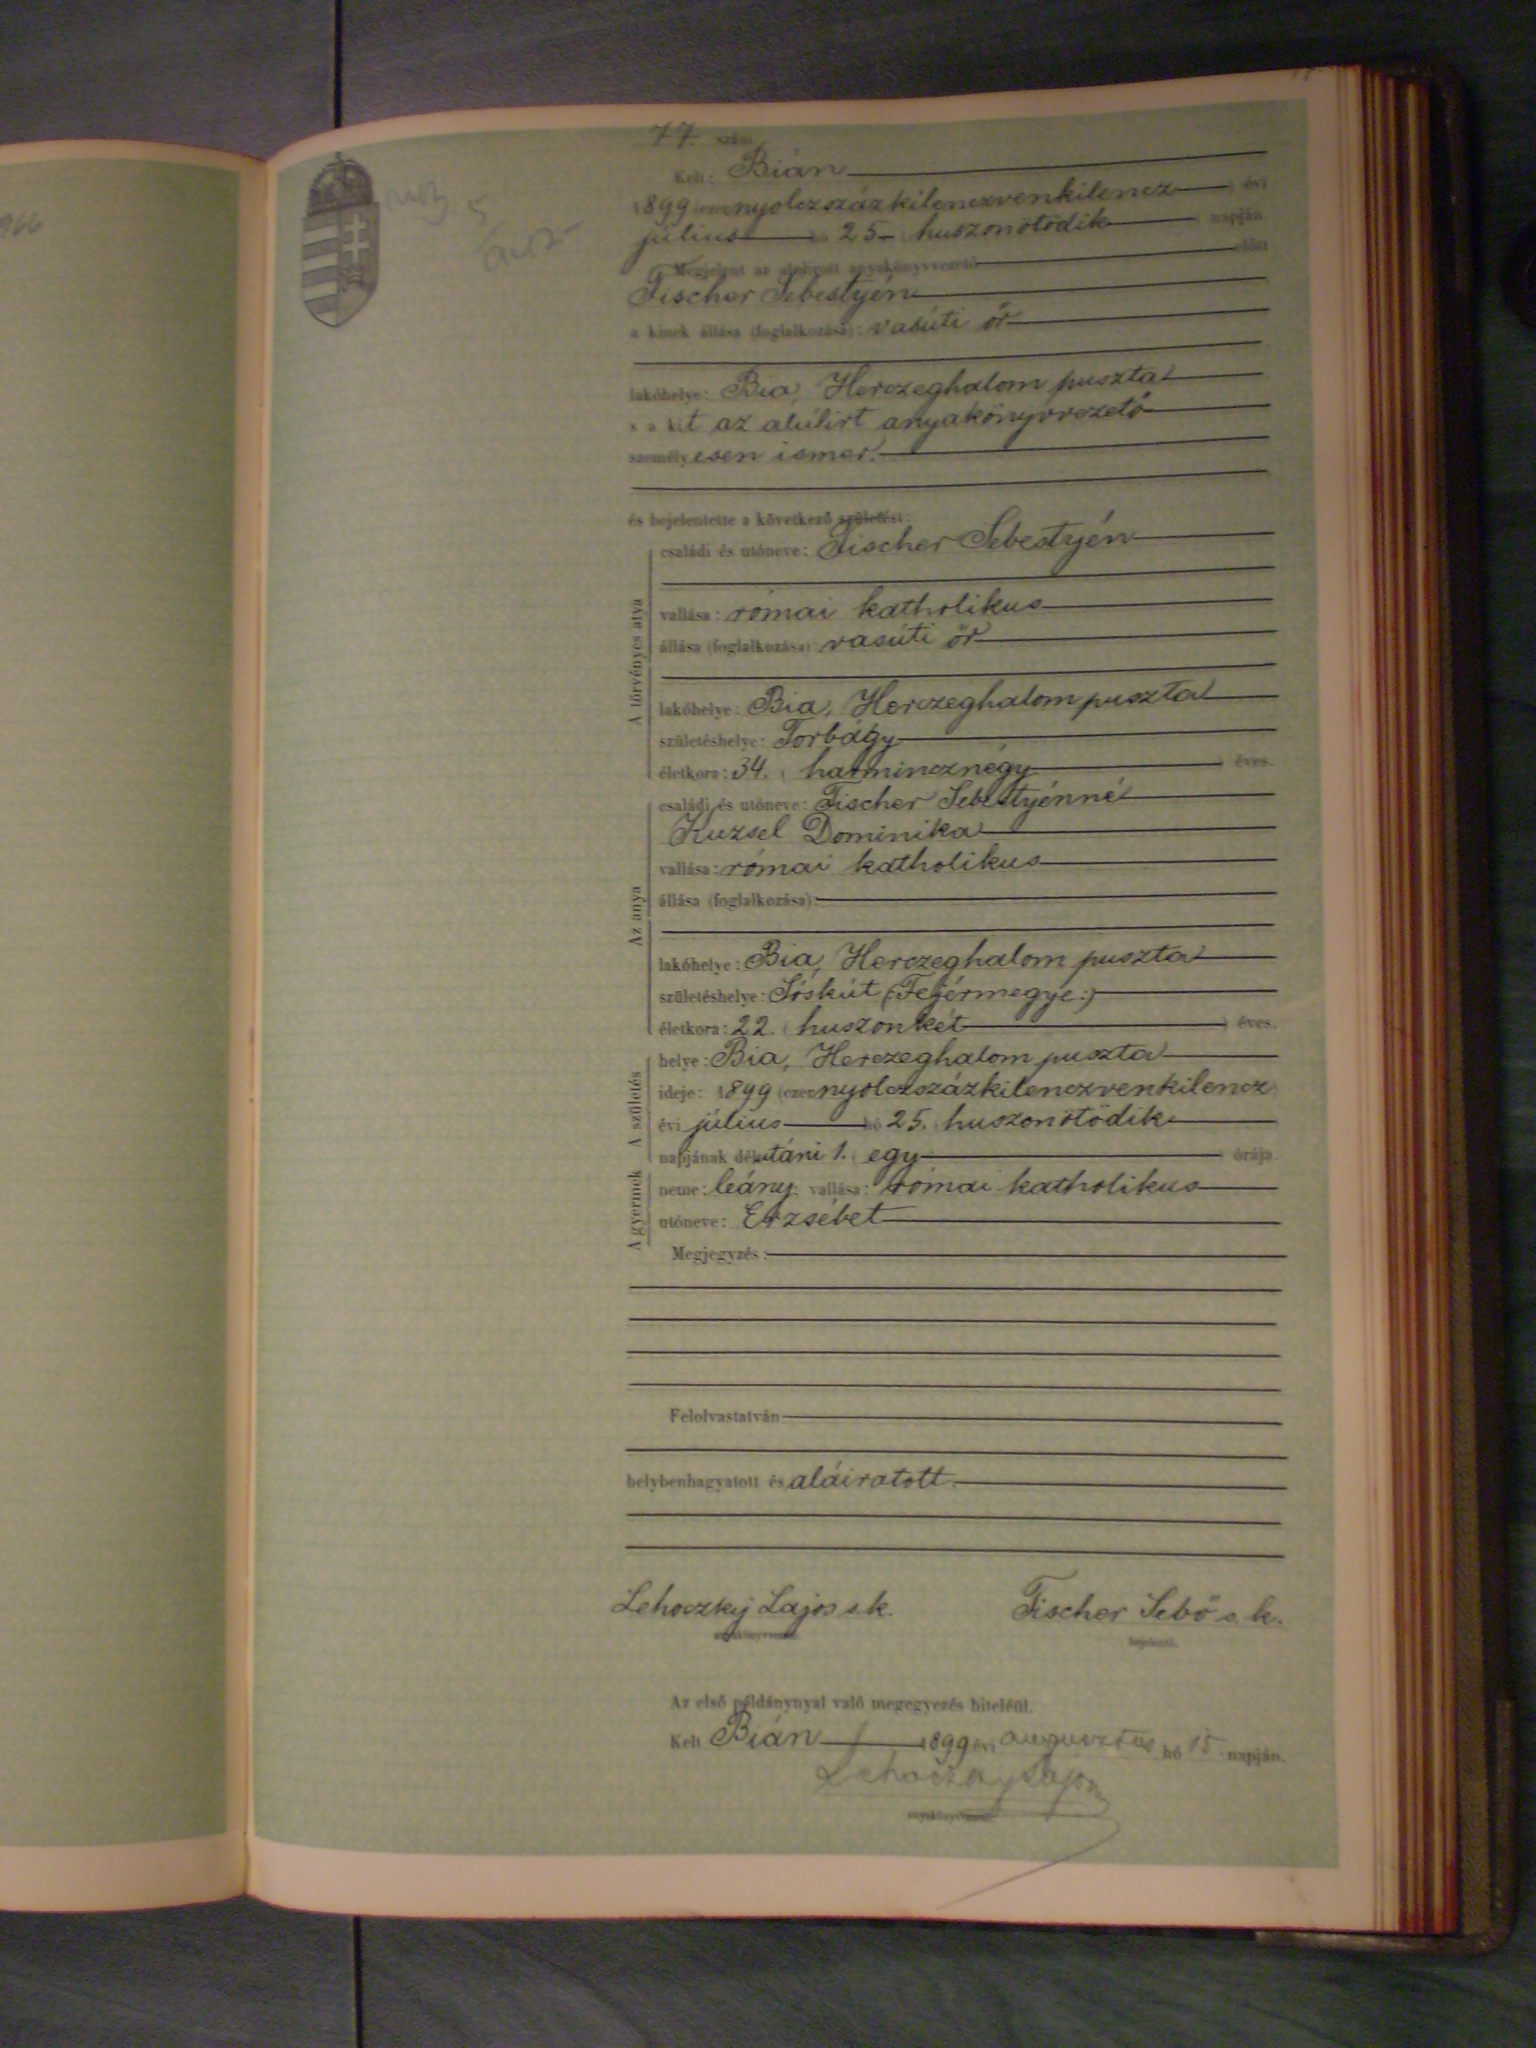 966
77. szám
Kelt: Bián
1899 (ezernyolczszázkilenczvenkilencz) évi
július hó 25- (huszonötödik) napján.
Megjelent az alulirott anyakönyvvezető előtt
Fischer Sebestyén
a kinek állása (foglalkozása): vasúti őr
lakóhelye: Bia, Herczeghalom puszta
s a kit az alúlirt anyakönyvvezető
személyesen ismer.
és bejelentette a következő születést:
A törvényes atya
családi és utóneve: Fischer Sebestyén
vallása: római katholikus
állása (foglalkozása): vasúti őr
lakóhelye: Bia, Herczeghalom puszta
születéshelye: Torbágy
életkora: 34. (harmincznégy) éves.
Az anya
családi és utóneve: Fischer Sebestyénné
Kuzsel Dominika
vallása: római katholikus
állása (foglalkozása):
lakóhelye: Bia, Herczeghalom puszta
születéshelye: Sóskút (:Fejérmegye:)
életkora: 22. (huszonkét) éves.
A születés
helye: Bia, Herczeghalom puszta
ideje: 1899 (ezernyolczszázkilenczvenkilencz)
évi július hó 25. (huszonötödik)
napjának délutáni 1. (egy) órája.
A gyermek
neme: leány. vallása: római katholikus
utóneve: Erzsébet
Megjegyzés:
Felolvastatván
helybenhagyatott és aláiratott.
Lehoczky Lajos s. k. Fischer Sebő s. k.
anyakönyvvezető. bejelentő.
Az első példánynyal való megegyezés hiteléül.
Kelt Bián 1899 évi augusztus hó 15 napján.
Lehoczky Lajos
anyakönyvvezető.